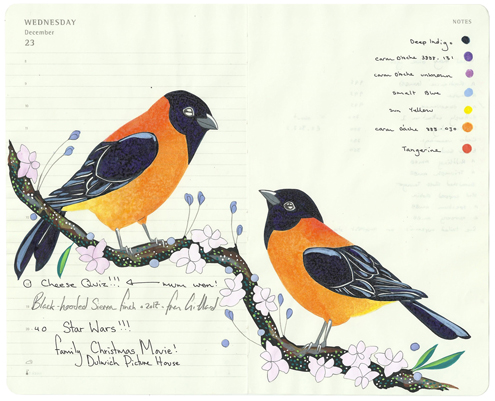 WEDNESDAY
December
23
NOTES
Deep Indigo
caran D'ache
caran D'ache unknown
Smalt Blue
Sun Yellow
caran D'ache
Tangerine
Cheese Quiz!!! ← mum won!
Black-hooded Sierra Finch
Star Wars!!!
Family Christmas Movie!
Dulwich Picture House